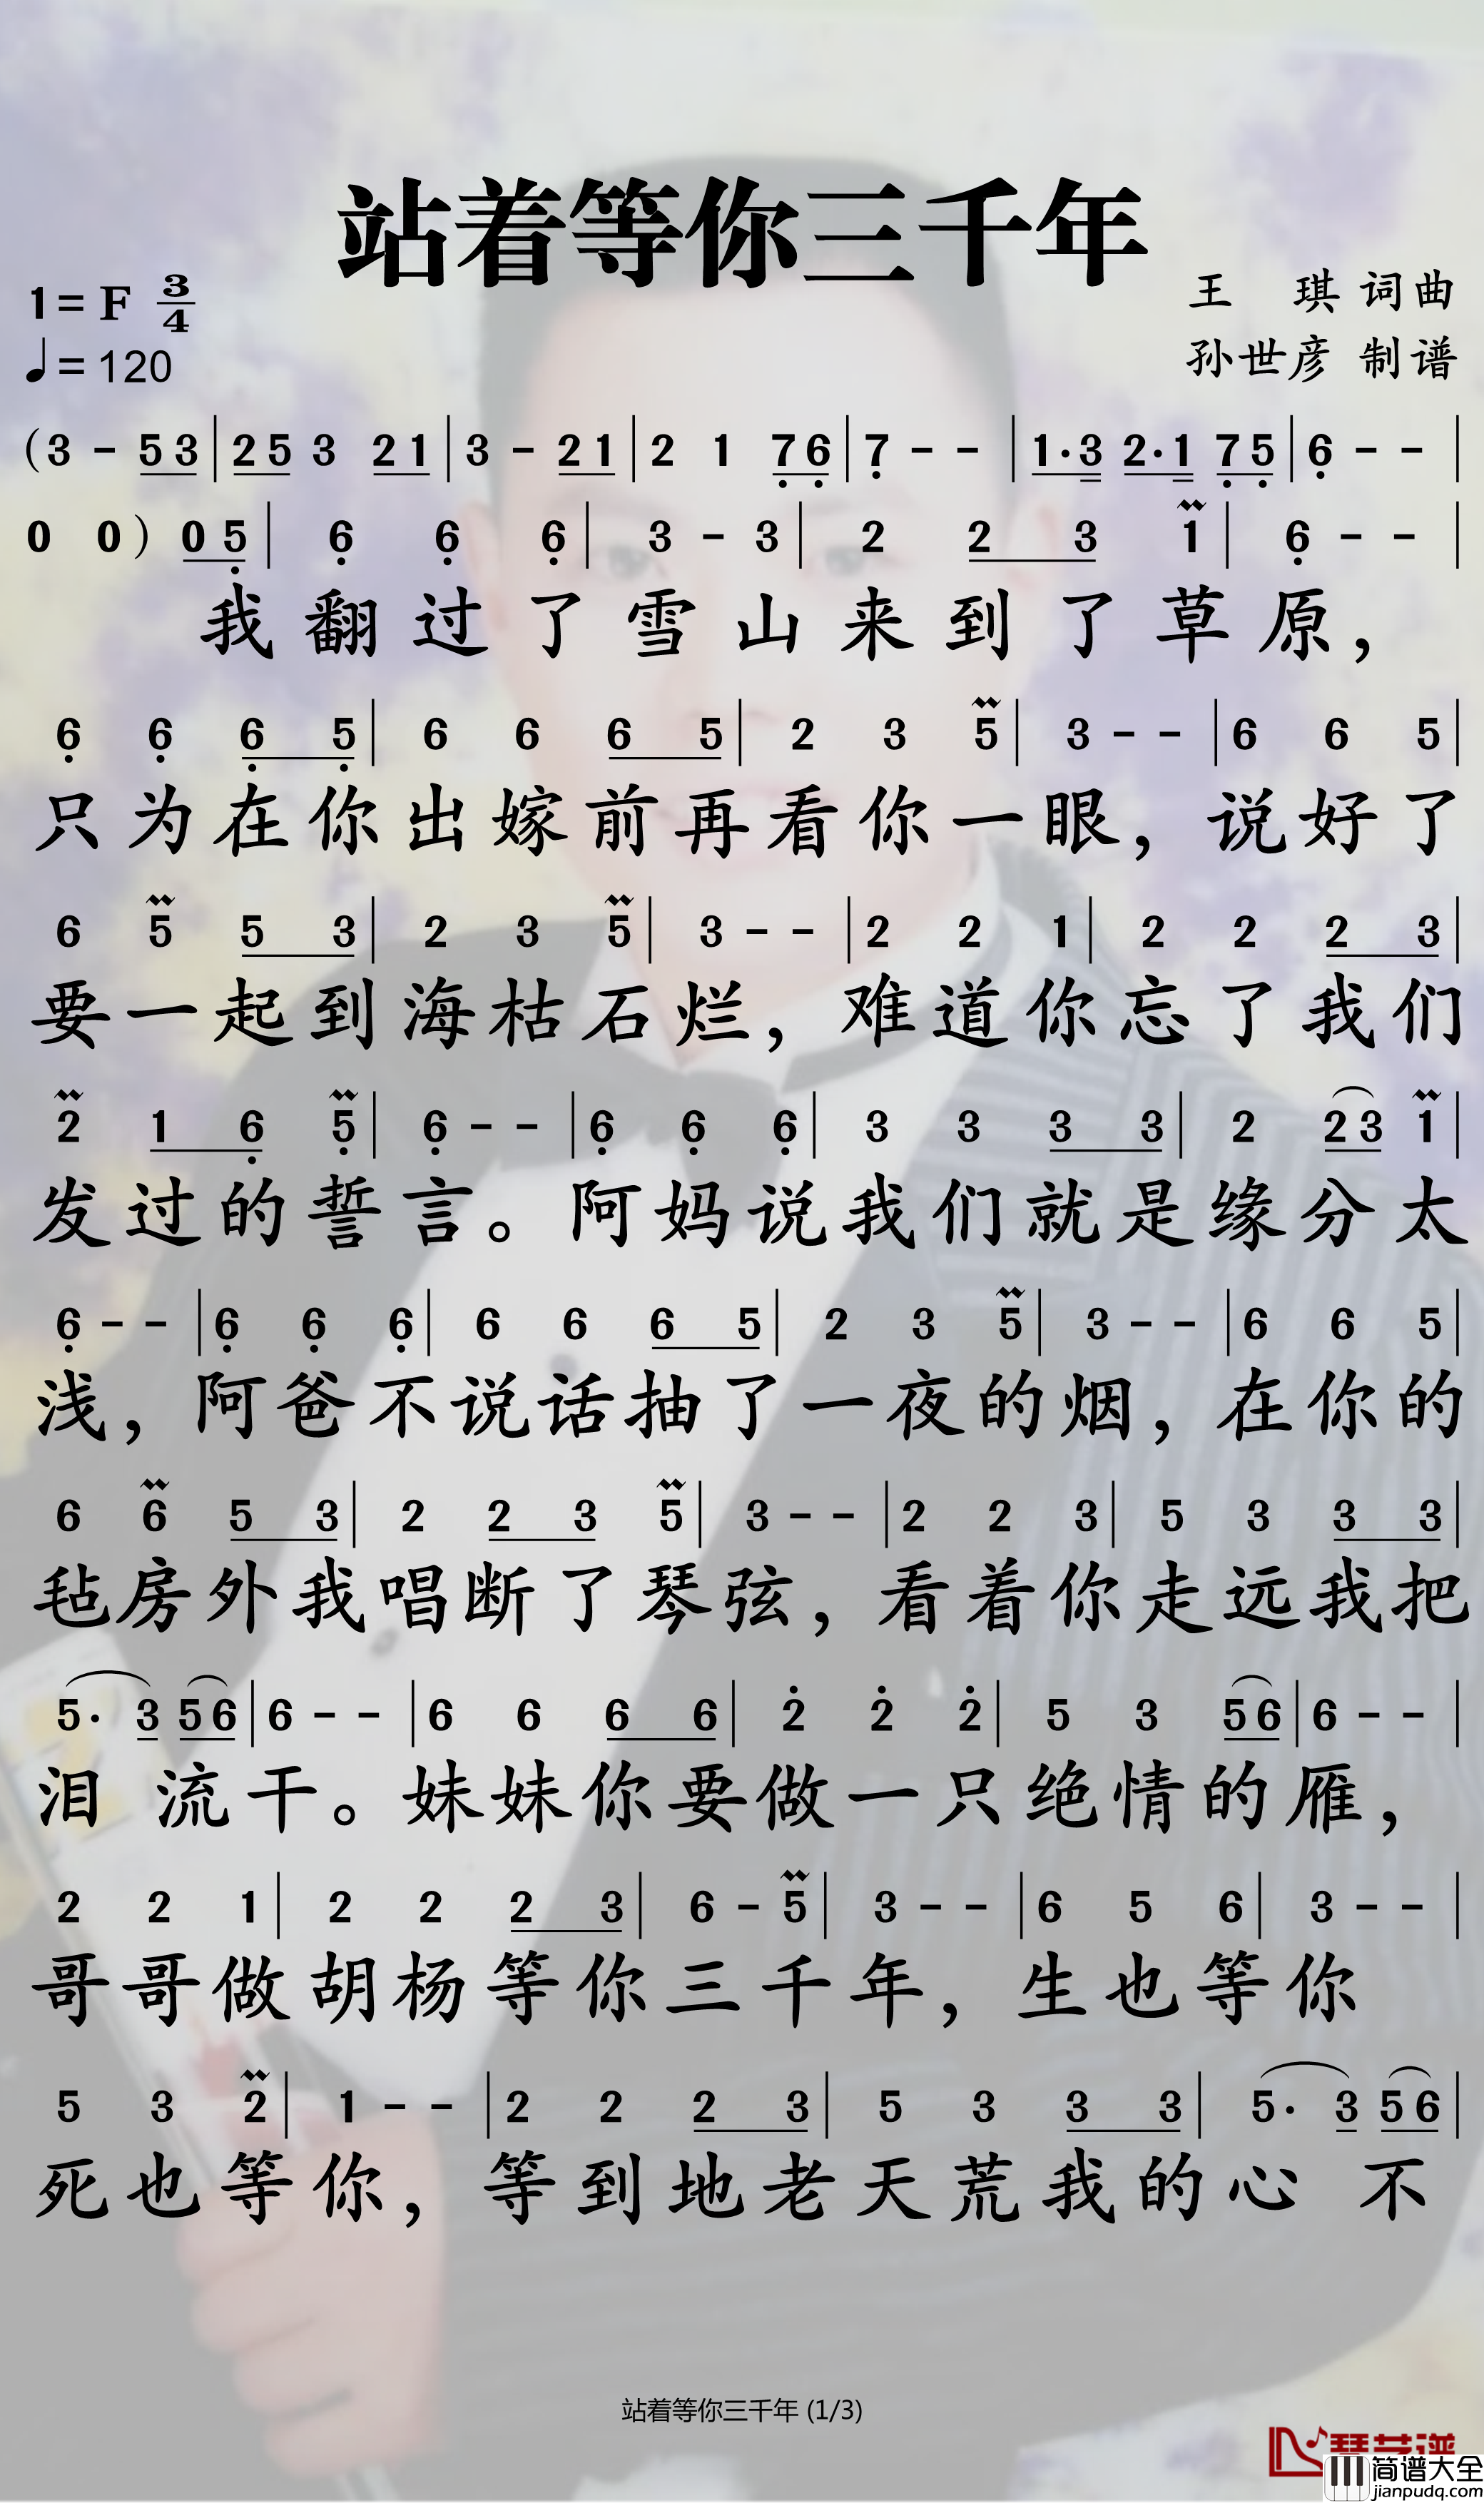 站着等你三千年
1=F 3/4
王 琪 词曲
♩=120
孙世彦 制谱
(3 - 5 3 | 2 5 3 2 1 | 3 - 2 1 | 2 1 7̣ 6̣ | 7̣ - - | 1· 3 2· 1 7̣ 5̣ | 6̣ - - |
0 0 ) 0 5̣ | 6̣ 6̣ 6̣ | 3 - 3 | 2 2 3 1 | 6̣ - - |
我翻过了雪山来到了草原，
6̣ 6̣ 6̣ 5̣ | 6 6 6 5 | 2 3 5 | 3 - - | 6 6 5 |
只为在你出嫁前再看你一眼，说好了
6 5 5 3 | 2 3 5 | 3 - - | 2 2 1 | 2 2 2 3 |
要一起到海枯石烂，难道你忘了我们
2 1 6̣ 5̣ | 6̣ - - | 6̣ 6̣ 6̣ | 3 3 3 3 | 2 2 3 1 |
发过的誓言。阿妈说我们就是缘分太
6̣ - - | 6̣ 6̣ 6̣ | 6 6 6 5 | 2 3 5 | 3 - - | 6 6 5 |
浅，阿爸不说话抽了一夜的烟，在你的
6 6 5 3 | 2 2 3 5 | 3 - - | 2 2 3 | 5 3 3 3 |
毡房外我唱断了琴弦，看着你走远我把
5· 3 5 6 | 6 - - | 6 6 6 6 | 2̇ 2̇ 2̇ | 5 3 5 6 | 6 - - |
泪 流干。妹妹你要做一只绝情的雁，
2 2 1 | 2 2 2 3 | 6 - 5 | 3 - - | 6 5 6 | 3 - - |
哥哥做胡杨等你三千年，生也等你
5 3 2 | 1 - - | 2 2 2 3 | 5 3 3 3 | 5· 3 5 6 |
死也等你，等到地老天荒我的心 不
站着等你三千年 (1/3)
琴艺谱
简谱大全
jianpudq.com